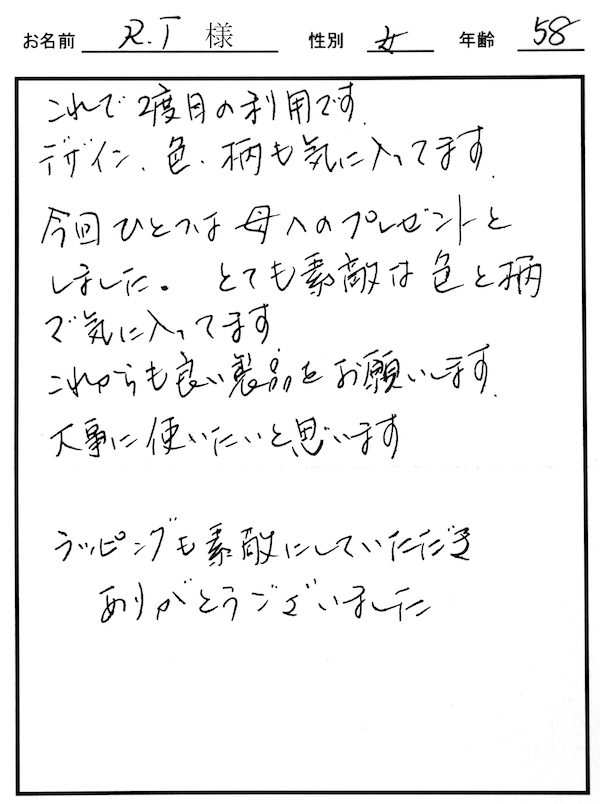 お名前 R.T 様 性別 女 年齢 58
これで2度目の利用です.
デザイン、色、柄も気に入ってます.
今回ひとつは母へのプレゼントと
しました。 とても素敵な色と柄
で気に入ってます
これからも良い製品をお願いします.
大事に使いたいと思います
ラッピングも素敵にしていただき
ありがとうございました